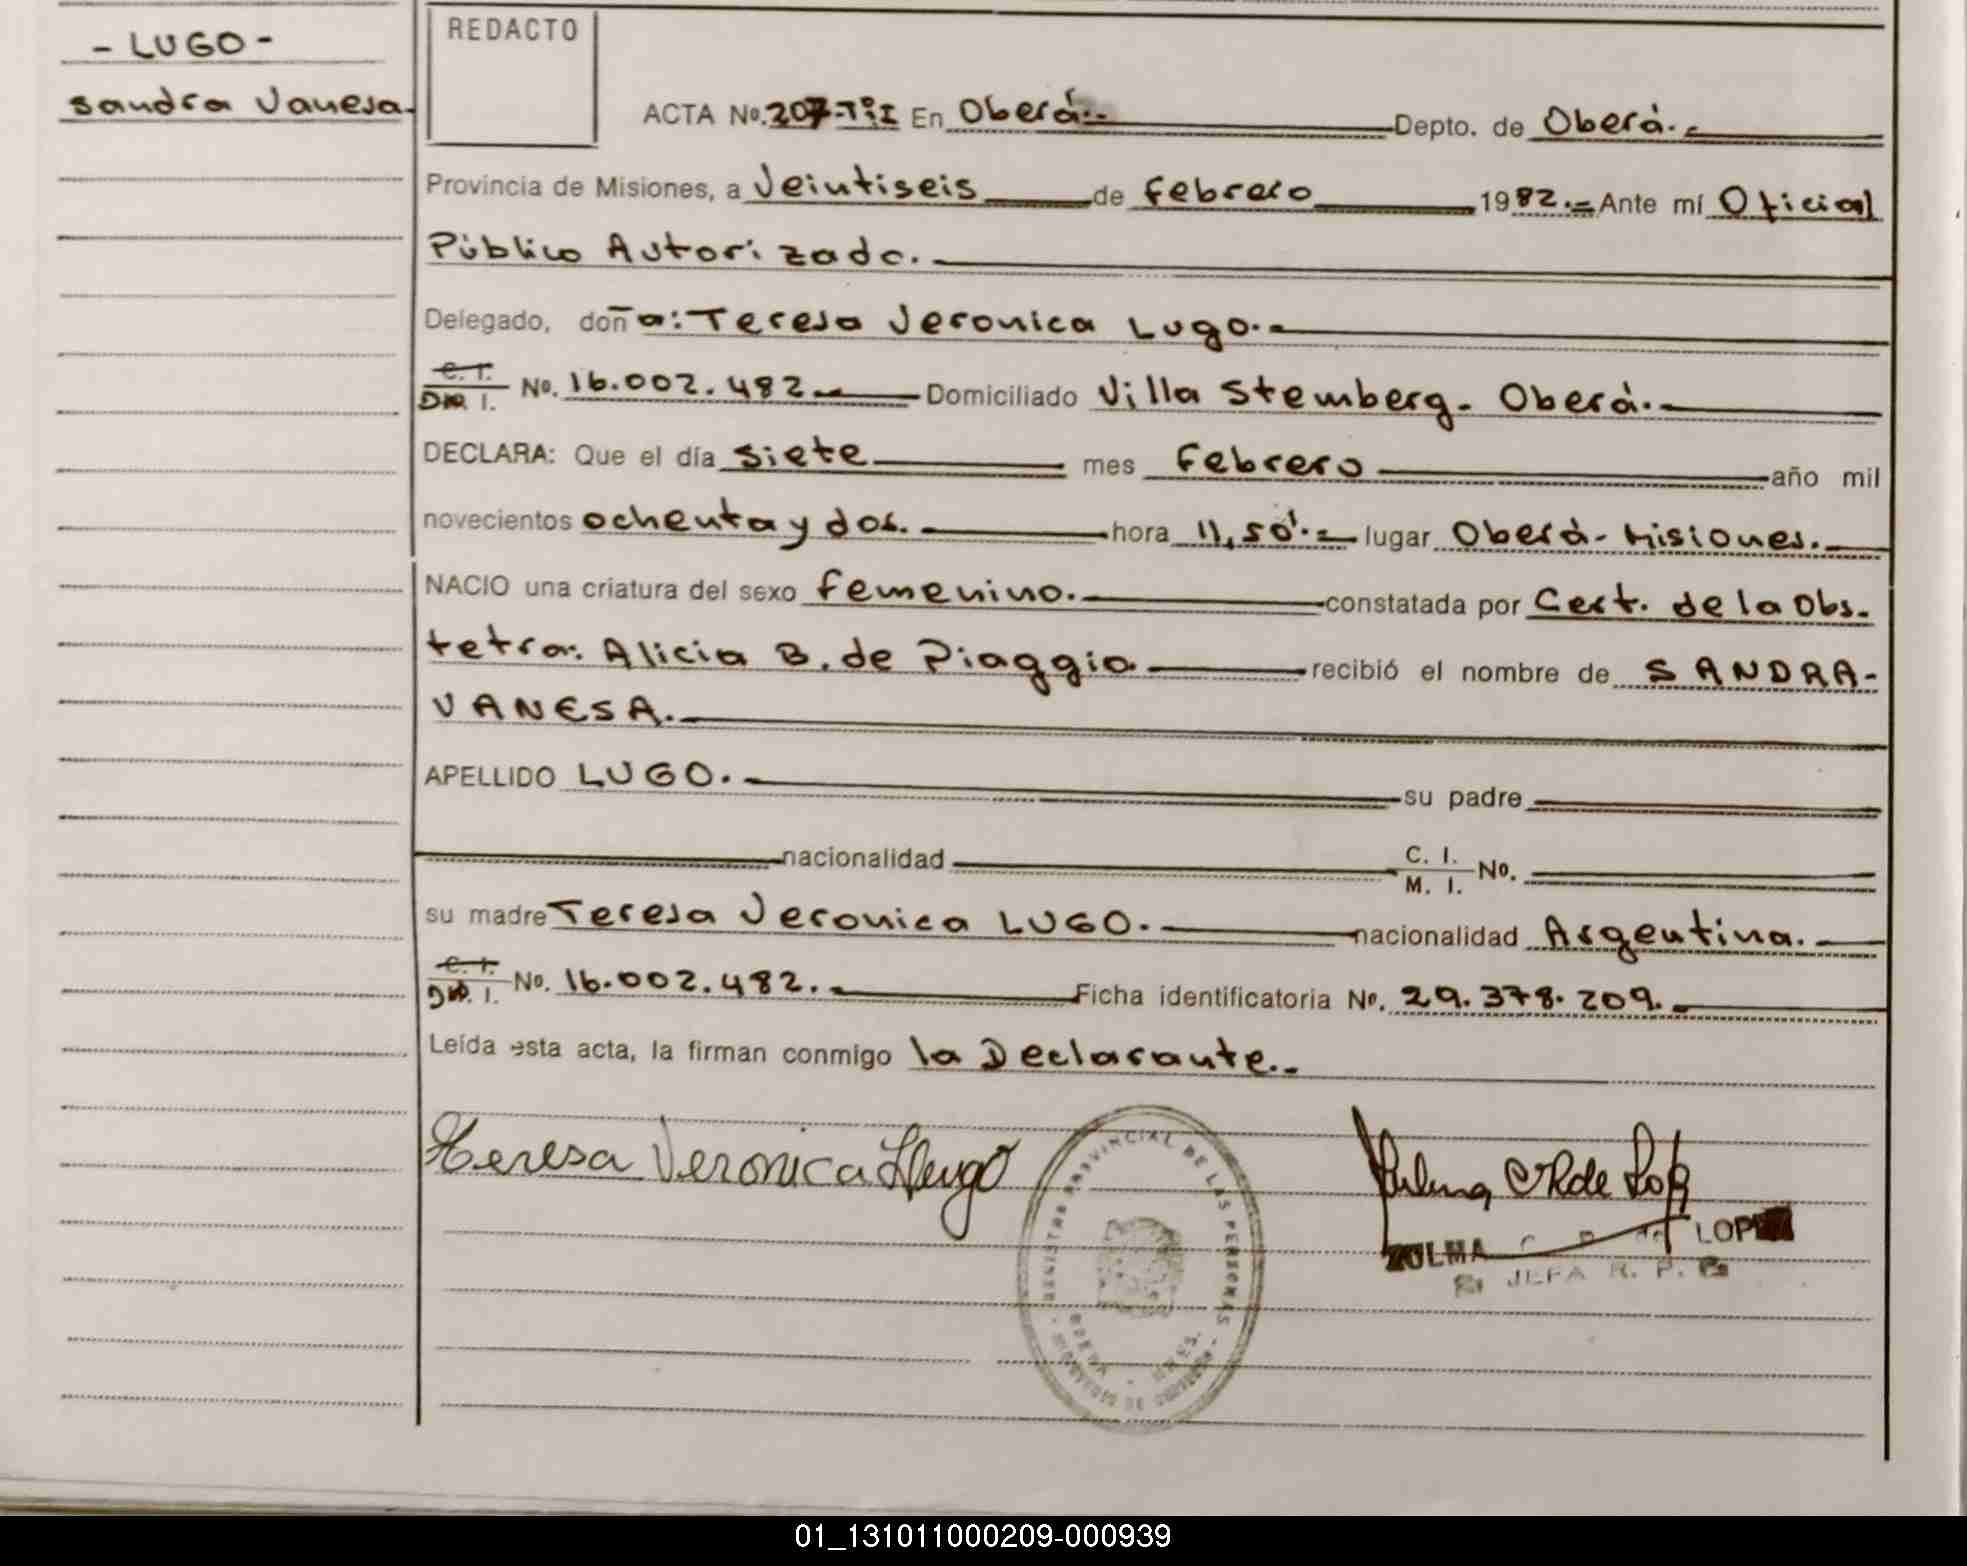 - LUGO -
Sandra Vanesa.
REDACTO
ACTA No. 207-T:I En Oberá.- Depto. de Oberá.-
Provincia de Misiones, a Veintiseis de Febrero 1982.- Ante mí Oficial
Público Autorizado.-
Delegado, doña: Teresa Veronica Lugo.-
C. I.
D.N. I. No. 16.002.482.- Domiciliado Villa Stemberg- Oberá.-
DECLARA: Que el día Siete mes Febrero año mil
novecientos ochenta y dos. hora 11,50'.- lugar Oberá- Misiones.-
NACIO una criatura del sexo Femenino.- constatada por Cert. de la Obs-
tetra: Alicia B. de Piaggio recibió el nombre de SANDRA-
VANESA.-
APELLIDO LUGO.- su padre
nacionalidad C. I.
M. I. No.
su madre Teresa Veronica LUGO.- nacionalidad Argentina.-
C. I.
D.N. I. No. 16.002.482.- Ficha identificatoria No. 29.378.209.-
Leída esta acta, la firman conmigo la Declarante.-
Teresa Veronica Lugo
REGISTRO PROVINCIAL DE LAS PERSONAS
OBERA - MNES.
ZULMA C. R. de LOPEZ
JEFA R. P. P.
01_131011000209-000939